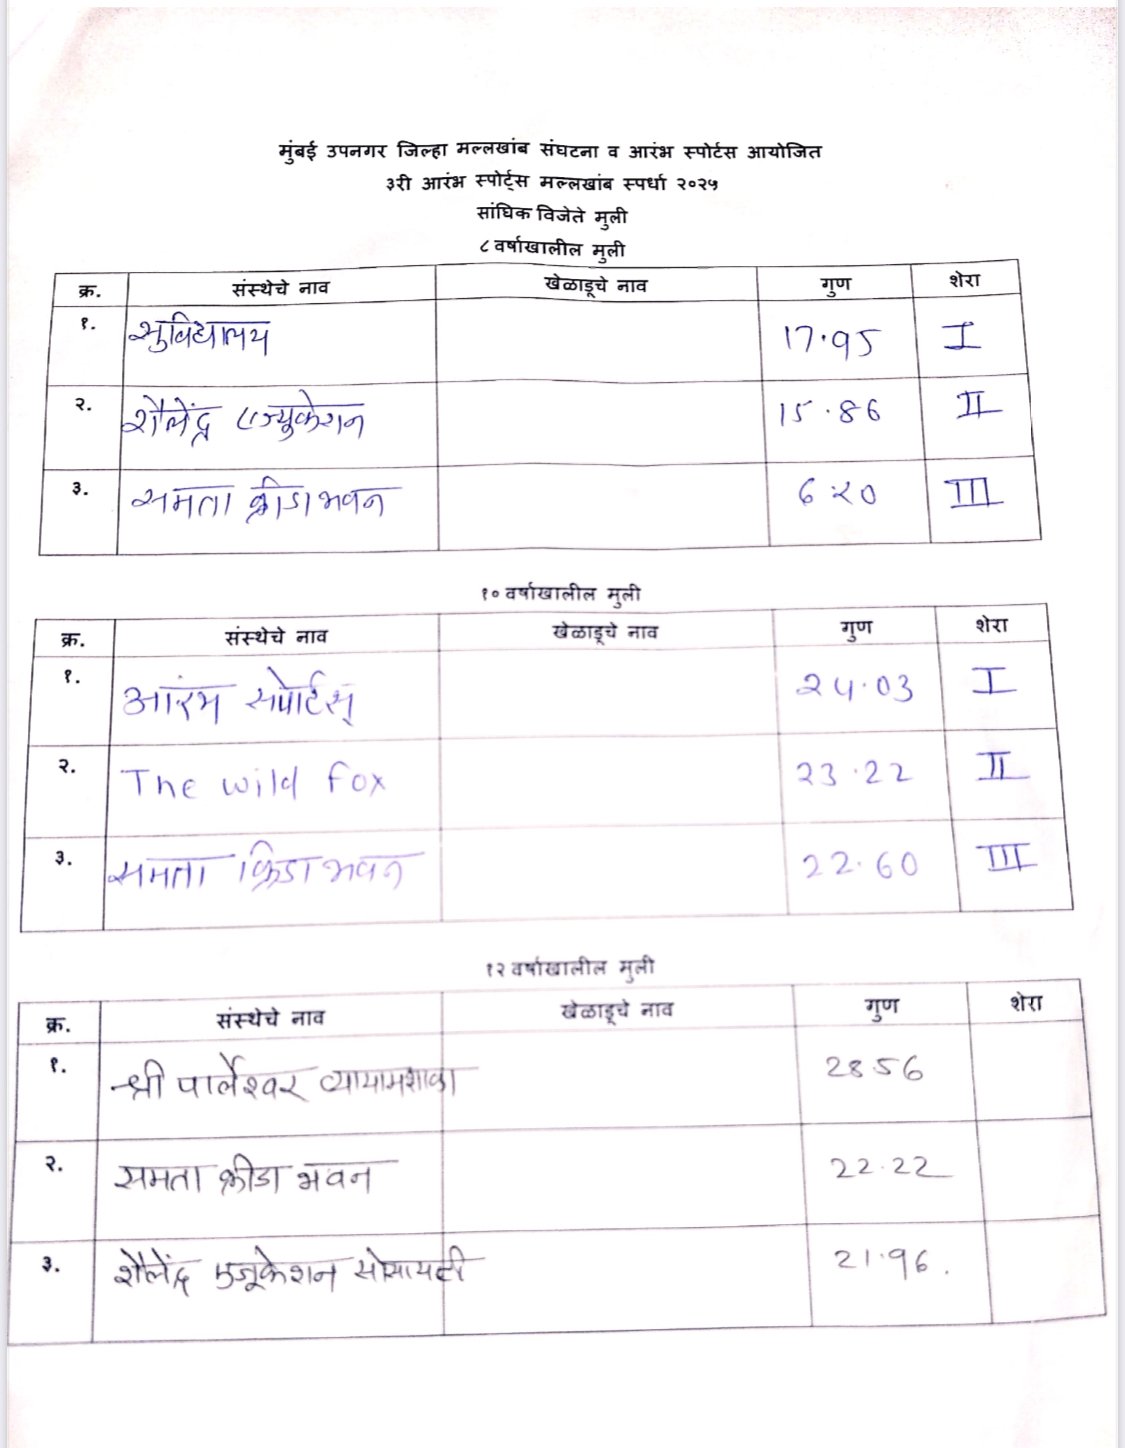 मुंबई उपनगर जिल्हा मल्लखांब संघटना व आरंभ स्पोर्टस आयोजित
३री आरंभ स्पोर्ट्स मल्लखांब स्पर्धा २०२५
सांघिक विजेते मुली
८ वर्षाखालील मुली
क्र. संस्थेचे नाव खेळाडूचे नाव गुण शेरा
१. सुविद्यालय 17.95 I
२. शैलेंद्र एज्युकेशन 15.86 II
३. समता क्रीडा भवन 6.20 III
१० वर्षाखालील मुली
क्र. संस्थेचे नाव खेळाडूचे नाव गुण शेरा
१. आरंभ स्पोर्टस् 24.03 I
२. The wild fox 23.22 II
३. समता क्रिडा भवन 22.60 III
१२ वर्षाखालील मुली
क्र. संस्थेचे नाव खेळाडूचे नाव गुण शेरा
१. श्री पार्लेश्वर व्यायामशाळा 28.56
२. समता क्रीडा भवन 22.22
३. शैलेंद्र एज्यूकेशन सोसायटी 21.96.